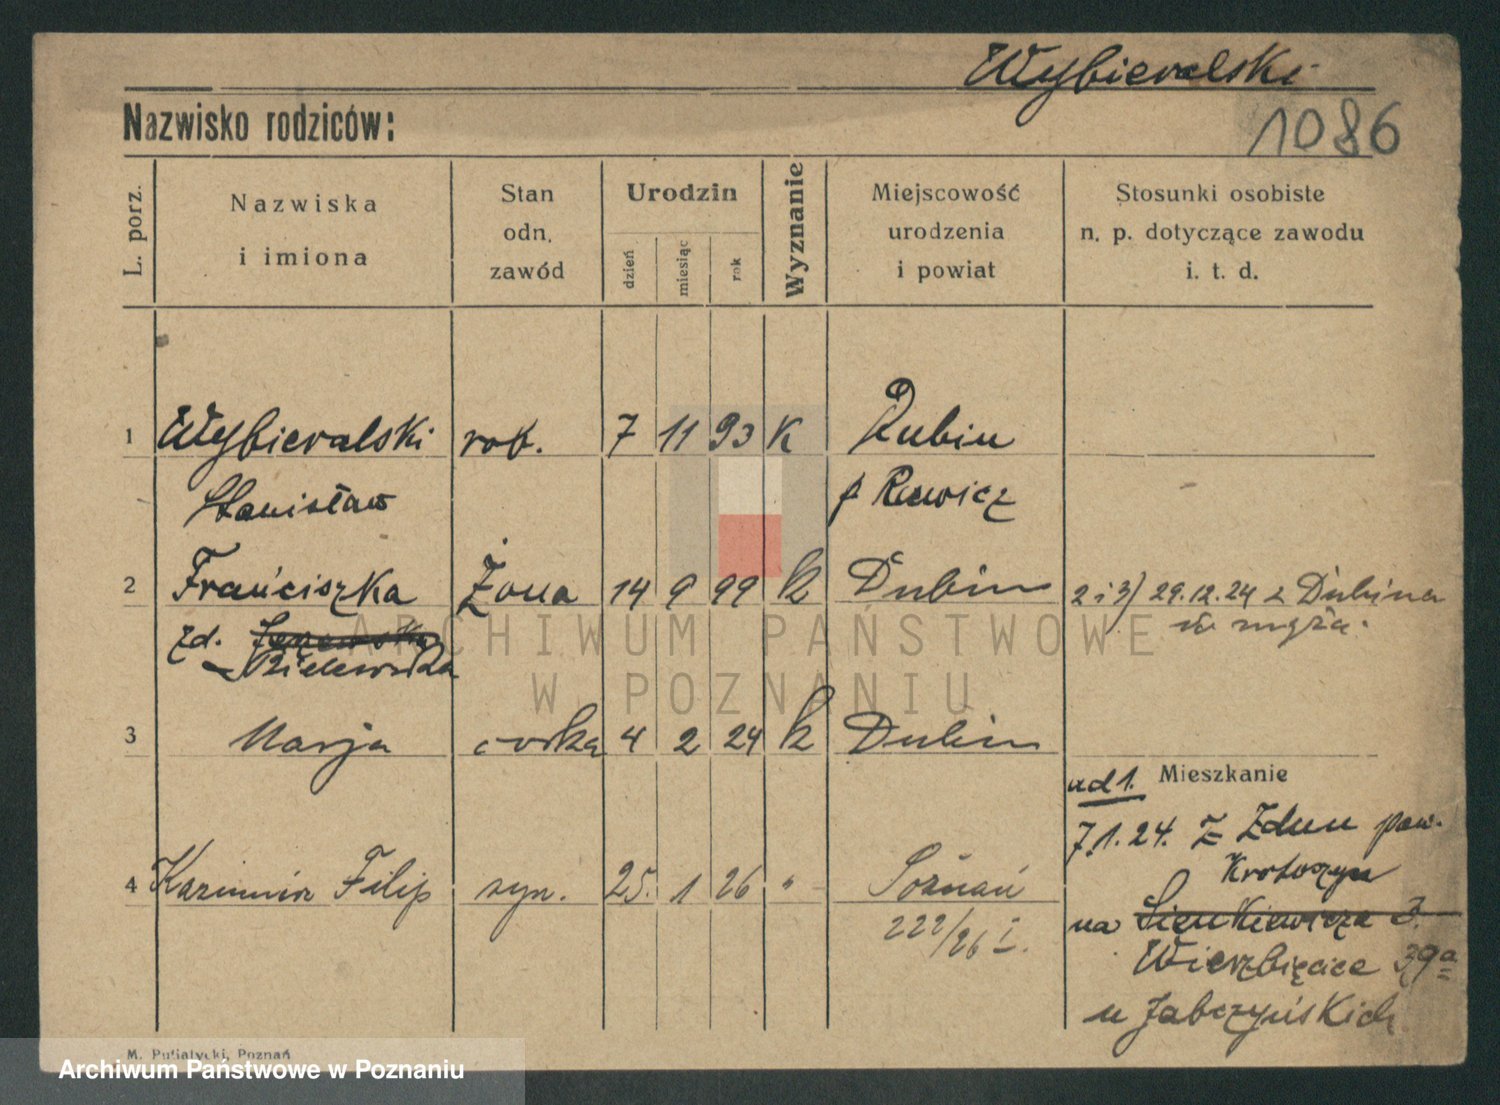 Wybieralski
1086
Nazwisko rodziców:
L. porz.
Nazwiska
i imiona
Stan
odn.
zawód
Urodzin
dzień
miesiąc
rok
Wyznanie
Miejscowość
urodzenia
i powiat
Stosunki osobiste
n. p. dotyczące zawodu
i. t. d.
1 Wybieralski rob. 7 11 93 K Dubin
Stanisław p Rawicz
2 Franciszka Żona 14 9 99 k Dubin 2 i 3) 29.12.24 z Dubina
zd. do męża.
3 Marja córka 4 2 24 k Dubin
ad 1. Mieszkanie
7.1.24. z Zdun pow.
Krotoszyn
4 Kazimierz Filip syn. 25. 1 26 " Poznań
na Sienkiewicza 3.
222/26 I.
Wierzbięcice 39a
u Jabczyńskich
M. Putiatycki, Poznań
ARCHIWUM PAŃSTWOWE
W POZNANIU
Archiwum Państwowe w Poznaniu